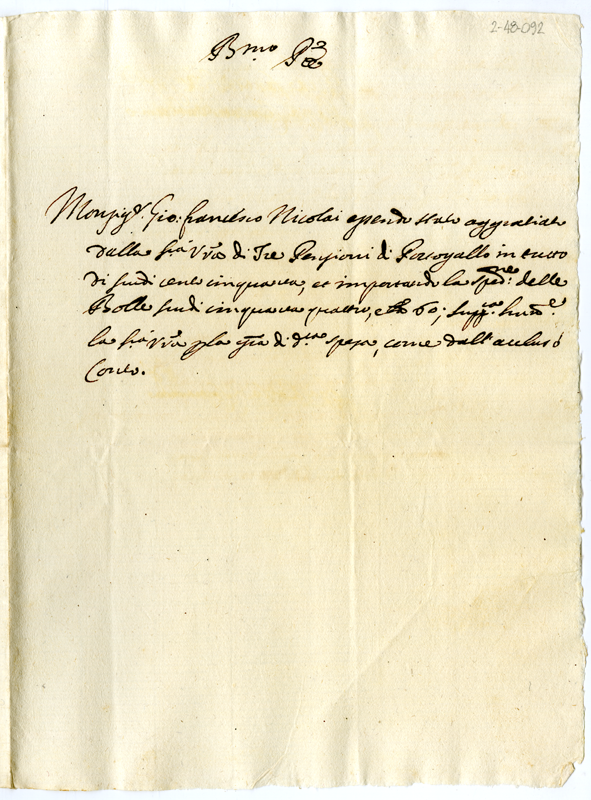 2-48-092
Bmo Pre
Monsigr. Gio: francesco Nicolai essendo stato aggratiato
dalla Stà Vrã di Tre Pensioni di Portogallo in tutto
di scudi cento cinquanta, et importando la spedne: delle
Bolle scudi cinquanta quattro, e 60; supp.ca
la Stà Vrã p la grã di d.ta spesa, come dall'accluso
Conto.